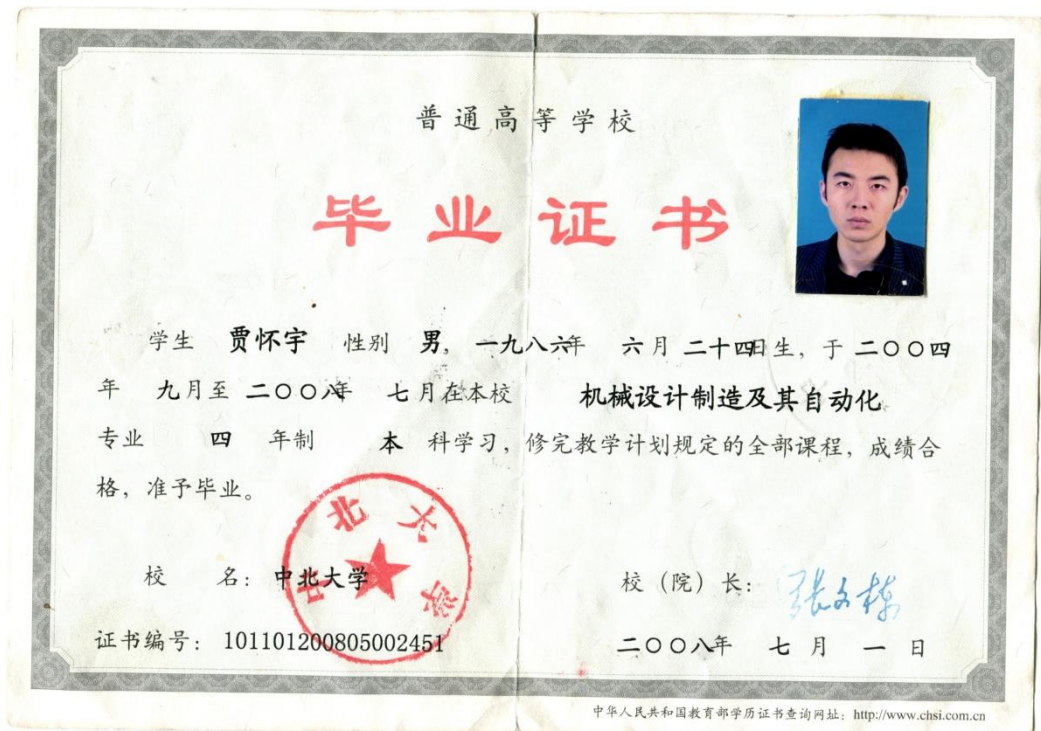 普通高等学校
毕业证书
学生 贾怀宇 性别 男, 一九八六年 六月 二十四日生, 于 二〇〇四
年 九月至 二〇〇八年 七月在本校 机械设计制造及其自动化
专业 四 年制 本 科学习, 修完教学计划规定的全部课程, 成绩合
格, 准予毕业。
中北大学
校 名: 中北大学
校（院）长: 张文栋
证书编号: 101101200805002451
二〇〇八年 七月一日
中华人民共和国教育部学历证书查询网址: http://www.chsi.com.cn